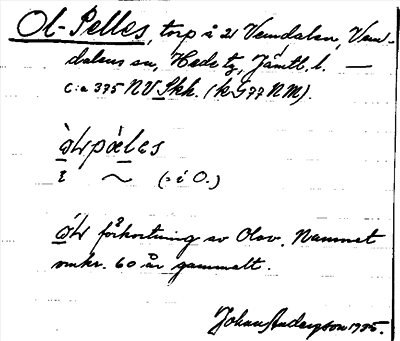 Ol-Pelles, torp å 21 Vemdalen, Vem-
dalens sn, Hede tg, Jämtl. l. —
c:a 375 NV Skk. (kG77NM).
(= i O.)
förkortning av Olov. Namnet
omkr. 60 år gammalt.
Johan Andersson 1935.